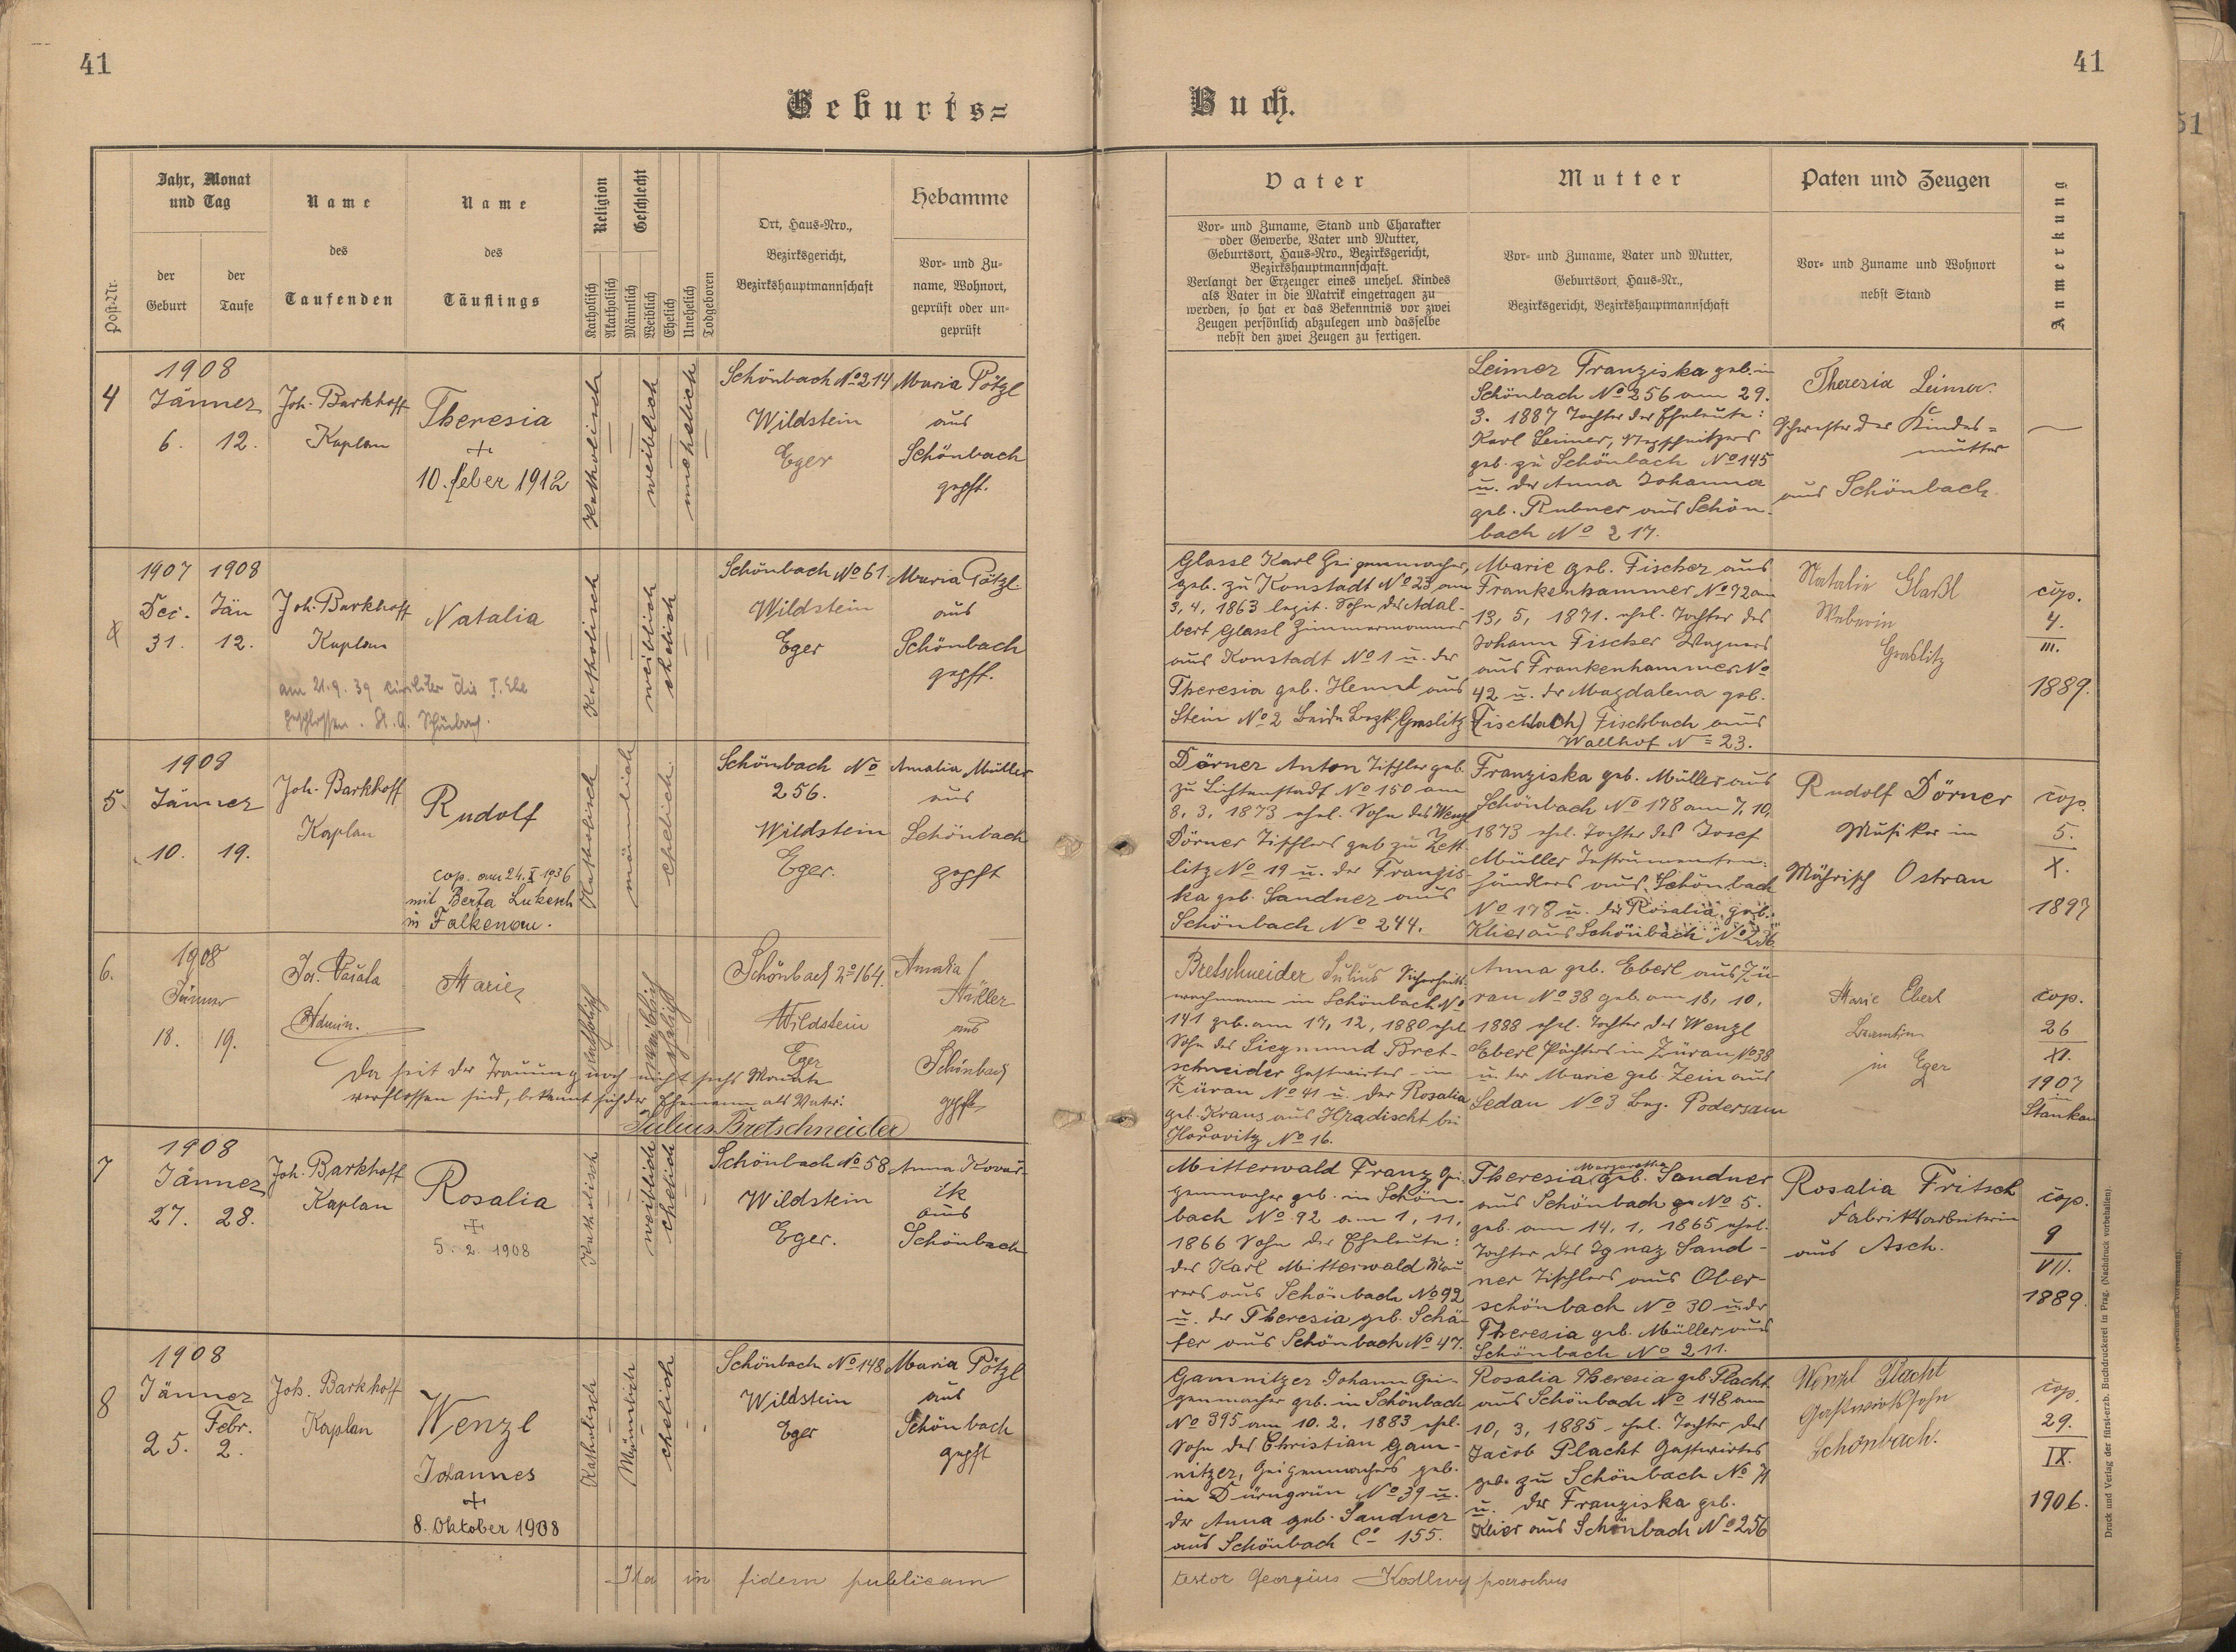 41
41
Geburts=
Buch.
Post-Nr.
Jahr, Monat
und Tag
der
Geburt
der
Taufe
Name
des
Taufenden
Name
des
Täuflings
Religion
Katholisch
Akatholisch
Geschlecht
Männlich
Weiblich
Ehelich
Unehelich
Todgeboren
Ort, Haus-Nro.,
Bezirksgericht,
Bezirkshauptmannschaft
Hebamme
Vor- und Zu-
name, Wohnort,
geprüft oder un-
geprüft
Vater
Vor- und Zuname, Stand und Charakter
oder Gewerbe, Vater und Mutter,
Geburtsort, Haus-Nro., Bezirksgericht,
Bezirkshauptmannschaft.
Verlangt der Erzeuger eines unehel. Kindes
als Vater in die Matrik eingetragen zu
werden, so hat er das Bekenntnis vor zwei
Zeugen persönlich abzulegen und dasselbe
nebst den zwei Zeugen zu fertigen.
Mutter
Vor- und Zuname, Vater und Mutter,
Geburtsort, Haus-Nr.,
Bezirksgericht, Bezirkshauptmannschaft
Paten und Zeugen
Vor- und Zuname und Wohnort
nebst Stand
Anmerkung
4
1908
Jänner
6. 12.
Joh. Barkhoff
Kaplan
Theresia
+
10. feber 1912
Katholisch
weiblich
unehelich
Schönbach No 214
Wildstein
Eger
Maria Pötzl
aus
Schönbach
gepft.
Leimer Franziska geb. in
Schönbach No 256 am 29.
3. 1887 Tochter der Eheleute:
Karl Leimer,
geb. zu Schönbach No 145
u. der Anna Johanna
geb. Rubner aus Schön-
bach No 217.
Theresia Leimer
Schwester der Kindes=
mutter
aus Schönbach.
1907 1908
Dec. Jän
31. 12.
Joh. Barkhoff
Kaplan
Natalia
am 21.9.39 civiliter die I. Ehe
geschlossen. St. A. Schönbach.
Katholisch
weiblich
ehelich
Schönbach No 61.
Wildstein
Eger
Maria Pötzl
aus
Schönbach
gepft.
Glassl Karl Geigenmacher,
geb. zu Konstadt No 23 am
3, 4, 1863 legit. Sohn des Adal-
bert Glassl Zimmermannes
aus Konstadt No 1 u. der
Theresia geb. Hemml aus
Stein No 2 beide Bezk. Graslitz
Marie geb. Fischer aus
Frankenhammer No 72 am
13, 5, 1871. ehel. Tochter des
Johann Fischer Wagners
aus Frankenhammer No
42 u. der Magdalena geb.
(Fischbach) Fischbach aus
Wallhof No 23.
Natalie Glaßl
Weberin
Graslitz
cop.
4.
III.
1889.
5.
1908
Jänner
10. 19.
Joh. Barkhoff
Kaplan
Rudolf
cop. am 24. X 1936
mit Berta Lukesch
in Falkenau.
Katholisch
männlich
ehelich
Schönbach No
256.
Wildstein
Eger.
Amalia Müller
aus
Schönbach
gepft
Dörner Anton Tischler geb.
zu Lichtenstadt No 150 am
8, 3, 1873 ehel. Sohn des Wenzl
Dörner Tischlers geb. zu Zett
litz No 19 u. der Franzis-
ka geb. Sandner aus
Schönbach No 244.
Franziska geb. Müller aus
Schönbach No 178 am 7, 10,
1873 ehel. Tochter des Josef
Müller Instrumenten-
händlers aus Schönbach
No 178 u. der Rosalia geb.
Klier aus Schönbach No 236
Rudolf Dörner
Musiker in
Mährisch Ostrau
cop.
5.
X.
1897
6.
1908
Jänner
18. 19.
Admin.
Marie
Da seit der Trauung noch nicht sechs Monate
verflossen sind, bekennt sich der Ehemann als Vater:
Julius Bretschneider
katholisch
weiblich
ehelich
Schönbach No 164.
Wildstein
Eger
Amalia
Müller
aus
Schönbach
gepft
Bretschneider Julius Sicherheits-
wachmann in Schönbach No
141 geb. am 17, 12, 1880 ehel
Sohn des Siegmund Bret-
schneider Gastwirtes in
Züran No 41 u. der Rosalia
geb. Kraus aus Hradischt bei
Horovitz No 16.
Anna geb. Eberl aus Zü-
ran No 38 geb. am 18, 10,
1888 ehel. Tochter des Wenzl
Eberl Pächters in Züran No 38
u. der Marie geb. Zein aus
Sedan No 3 Bez. Podersam
Marie Eberl
Beamtin
in Eger
cop.
26
XI.
1907
in
Stankau
7
1908
Jänner
27. 28.
Joh. Barkhoff
Kaplan
Rosalia
+
5. 2. 1908
Katholisch
weiblich
ehelich
Schönbach No 58
Wildstein
Eger.
Anna Kovar-
ik
aus
Schönbach
Mitterwald Franz Gei-
genmacher geb. in Schön-
bach No 92 am 1, 11,
1866 Sohn der Eheleute:
des Karl Mitterwald Mau
rers aus Schönbach No 92
u. der Theresia geb. Schä-
fer aus Schönbach No 47.
Theresia Margaretha geb. Sandner
aus Schönbach No 5.
geb. am 14, 1, 1865 ehel.
Tochter des Ignaz Sand-
ner Tischlers aus Ober-
schönbach No 30 u. der
Theresia geb. Müller aus
Schönbach No 211.
Rosalia Fritsch
Fabriksarbeiterin
aus Asch.
cop.
9
VII.
1889.
8
1908
Jänner
Febr.
25. 2.
Joh. Barkhoff
Kaplan
Wenzl
Johannes
+
8. Oktober 1908
Katholisch
Männlich
ehelich
Schönbach No 148
Wildstein
Eger
Maria Pötzl
aus
Schönbach
gepft
Gamnitzer Johann Gei-
genmacher geb. in Schönbach
No 395 am 10. 2. 1883 ehel.
Sohn des Christian Gam-
nitzer, Geigenmachers geb.
in Dürngrün No 39 u.
der Anna geb. Sandner
aus Schönbach 155.
Rosalia Theresia geb. Placht
aus Schönbach No 148 am
10, 3, 1885 - ehel. Tochter des
Jacob Placht Gastwirtes
geb. zu Schönbach No 71
u. der Franziska geb.
Klier aus Schönbach No 256
Wenzl Placht
Gastwirtssohn
Schönbach.
cop.
29.
IX.
1906.
Ita in fidem publicam
testor Georgius parochus
Druck und Verlag der fürst-erzb. Buchdruckerei in Prag. (Nachdruck vorbehalten).
51